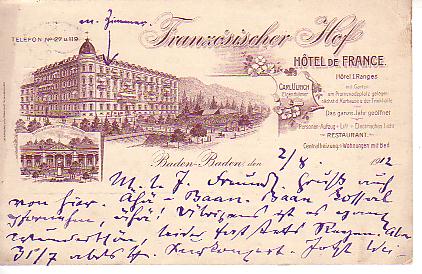 m. Zimmer.
TELEFON No 27 u 119
Französischer Hof
HÔTEL DE FRANCE.
Hôtel I. Ranges
CARL ULRICH
Eigenthümer
mit Garten
am Promenadeplatz gelegen
nächst d. Kurhause u. der Trinkhalle
Das ganze Jahr geöffnet
Personen-Aufzug - Lift - Electrisches Licht
RESTAURANT.
Centralheizung - Wohnungen mit Bad
Baden-Baden, den 2/8. 1912
M. l. J. Freund. Gruß auf
von hier. Baan - Baan
Übrigens ist es ganz
wunderschön, leider Regen.
31/7 abds Kurkonzert. Jetzt